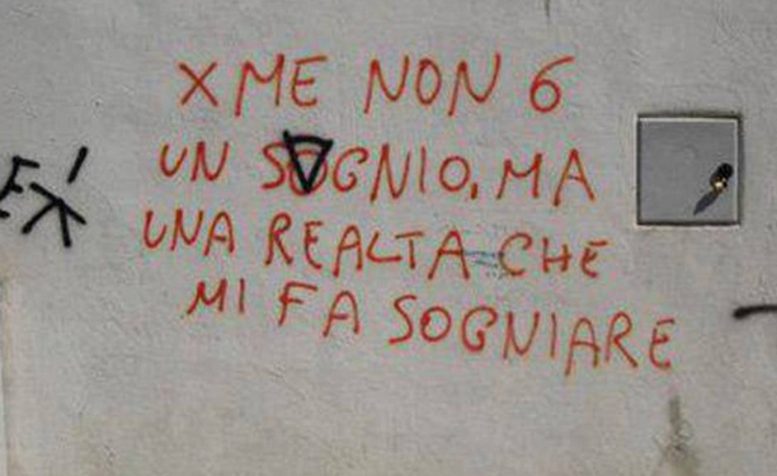 X ME NON 6
UN SOGNIO, MA
UNA REALTA CHE
MI FA SOGNIARE